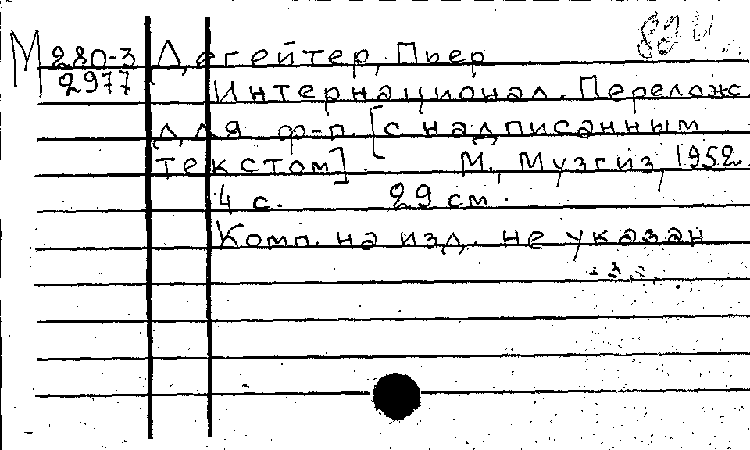 М 280-3 Дегейтер, Пьер
2977 Интернационал. Перелож.
для ф-п. [с надписанным
текстом] М., Музгиз, 1952.
4 с. 29 см.
Комп. на изд. не указан